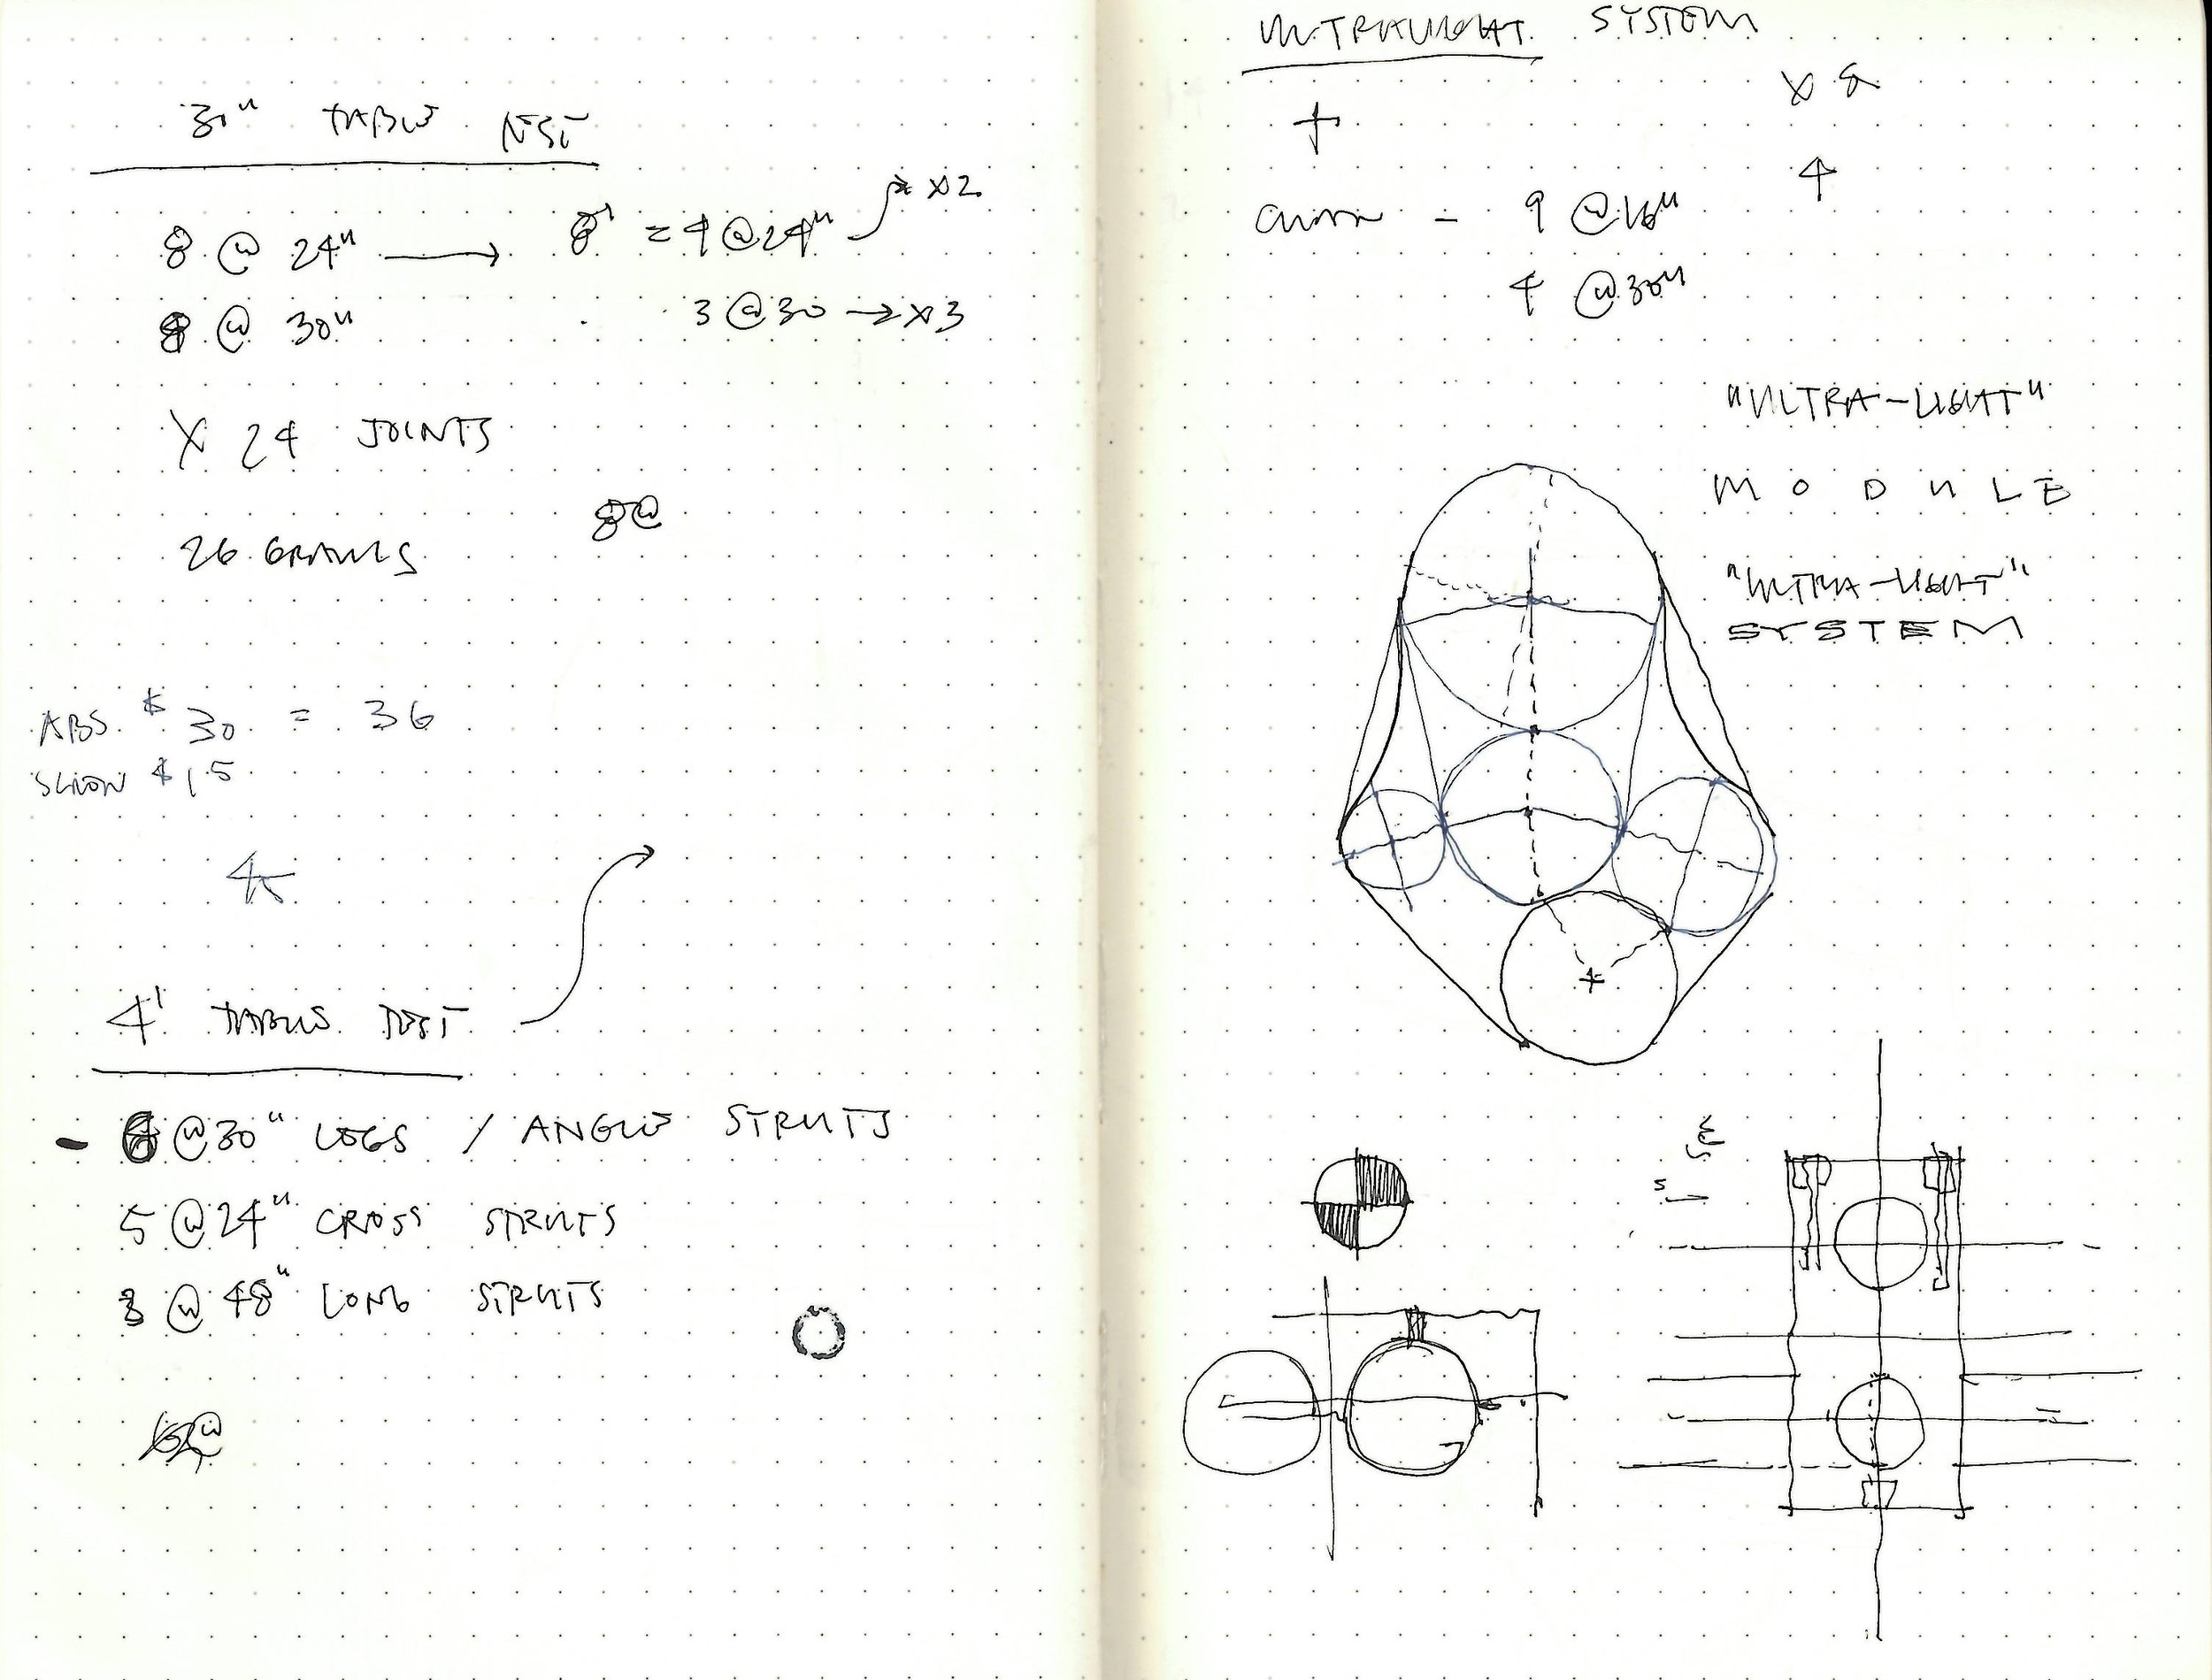 30" TABLE TEST
8 @ 24" → 8' = 4 @ 24" → x2
8 @ 30" 3 @ 30 → x3
X 24 JOINTS
26 GRAMS
8@
ABS $ 30 = 36
$ 15
4' TABLE TEST
- @ 30" LEGS / ANGLE STRUTS
5 @ 24" CROSS STRUTS
3 @ 48" LONG STRUTS
ULTRALIGHT SYSTEM
X 8
+
4
- 9 @ 16"
4 @ 30"
"ULTRA-LIGHT"
MODULE
"ULTRA-LIGHT"
SYSTEM